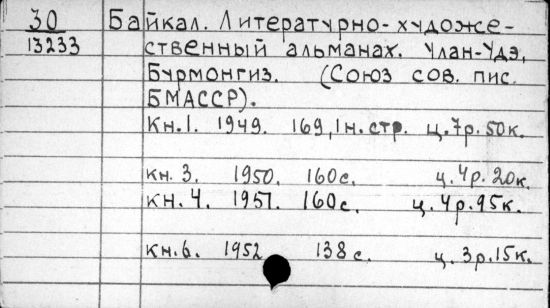 30 Байкал. Литературно-художе-
13233 ственный альманах. Улан-Удэ,
Бурмонгиз. (Союз сов. пис.
БМАССР).
Кн.1. 1949. 169, 1н.стр. ц.7р.50к.
кн. 3. 1950. 160с. ц.4р.20к.
кн. 4. 1951. 160с. ц.4р.95к.
кн.6. 1952 138 с. ц.3р.15к.